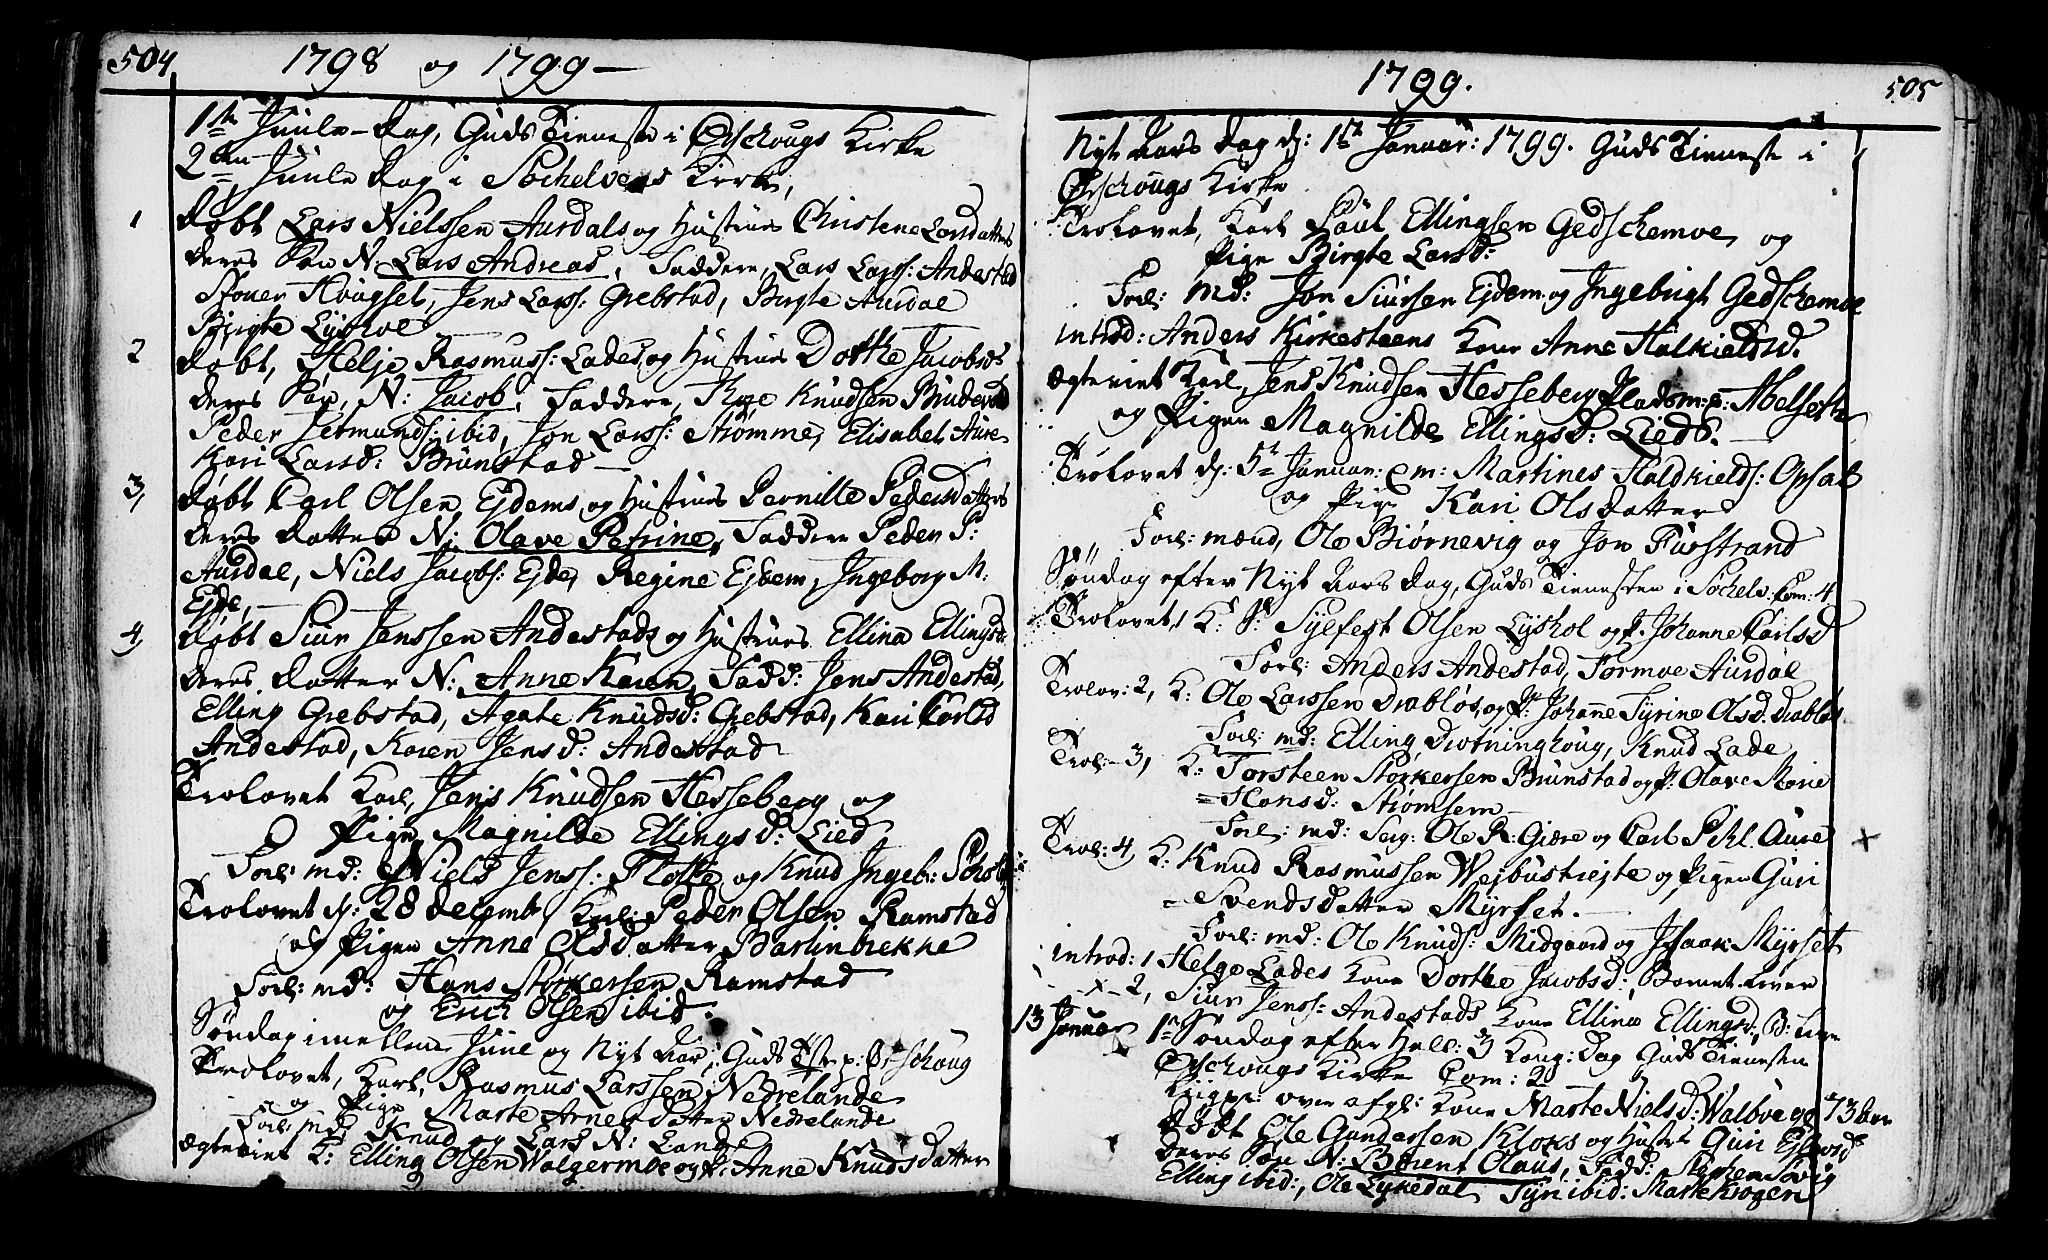 504
1798 og 1799 –
1ste Juule-Dag, Guds Tieneste i Ørschougs Kirke
2den Juule Dag i Søchelvens Kirke,
1 døbt Lars Nielssen Aurdals og Hustrues Christene Larsdatters
deres Søn N: Lars Andreas, Faddere, Lars Larss: Andestad
Hougset, Jens Larss: Grebstad, Birgte Aurdal
Birgte Lyshoel
2 døbt, Helje Rasmuss: Lades, og Hustrues Dorthe Jacobsd:
deres Søn, N: Jacob, Faddere, Knudsen
Peder Jetmunds: ibid, Jon Larss: Strømme, Elisabet Aure
Kari Larsd: Brunstad –
3, døbt Carl Olsen Ejdems og Hustrues Pernille Pedersdatters
deres datter N: Olave Petrine, Faddere Peder P:
Aurdal, Niels Jacobs: Ejde, Regine Ejdem, Ingeborg M:
Ejde, –
4, døbt Siur Jenssen Andestads og Hustrues Ellina Ellingsd:
deres datter N: Anne Karen, Fadd: Jens Andestad,
Elling Grebstad, Agate Knudsd: Grebstad, Kari Carlsd
Andestad, Karen Jensd: Andestad
Trolovet Karl, Jens Knudsen Hesseberg og
Pige Magnilde Ellingsd: Lied
Forl: md: Niels Jenss: Flotte og Knud Ingeb:
Trolovet d: 28 decemb. Karl: Peder Olsen Ramstad
og Pigen Anne Olsdatter Barlinbrekke
Forl: md: Hans Storkersen Ramstad
og Erich Olsen ibid.
Søndag imellem Juul og Nyt Aar, Guds Tst: p: Ørschoug
Trolovet, Karl, Rasmus Larssen Nedrelande
og Pige Marte Arnesdatter Nedrelande
Forl: md Knud og Lars N: Lande
Ægteviet K: Elling Olsen Walgermoe og P: Anne Knudsdatter
1799.
505
Nyt Aars dag d: 1te Januar: 1799. Guds Tieneste i
Ørschougs Kirke
Trolovet, Karl Poul Ellingsen Gedschemoe og
Pige Birgte Larsd:
Forl: md: Jon Siursen Ejdem og Ingebrigt Gedschemoe
introd: Anders Kirkesteens Kone Anne Halkieldsd.
Ægteviet Karl, Jens Knudsen Hesseberg Pladsm: p: Abelseth
og Pigen Magnilde Ellingsd: Lied. –
Trolovet d: 5te Januar: Martines Haldkields: Opsal
og Pige Kari Olsdatter
Forl: mænd, Ole Biørnevig og Jon Furstrand
Søndag efter Nyt Aars dag, Guds Tienesten i Søchelv: Com: 4
Trolovet, 1 K: Sylfest Olsen Lyshol og P. Johanne Carlsd
Forl: Anders Andestad, Tormoe Aurdal
Trolov: 2, K: Ole Larssen Drabløs, og P: Johanne Syrine Olsd. Drabløs
Forl: md: Elling Drotninghoug, Knud Lade
Trol: 3, K: Torsteen Storkersen Brunstad og P: Olave Marie
= Hansd: Strømsem –
Forl: md: Serg: Ole R: Giære og Carl Aure
Trol: 4, K: Knud Rasmussen Wejbustrejte og Pigen Guri
= Svendsdatter Myrset. –
Forl: md: Ole Knuds: Midgaard og Isaak Myrset
introd: 1 Helge Lades Kone Dorthe Jacobsd: Barnet lever
– x – 2, Siur Jenss: Andestads Kone Ellina Ellingsd:
13 Januar 1te Søndag efter Hell: 3 Kong: Dag Guds Tienesten
Ørschougs Kirke Com: 2
over afgl: Kone Marte Nielsd: 73 Aar
døbt Ole Gundersen Kloks og Hustr Guri
deres Søn N: Bærent Olaus, Fadd: Søvig
Elling ibid:, Ole Lykedal Syri ibid: Marte Krogen